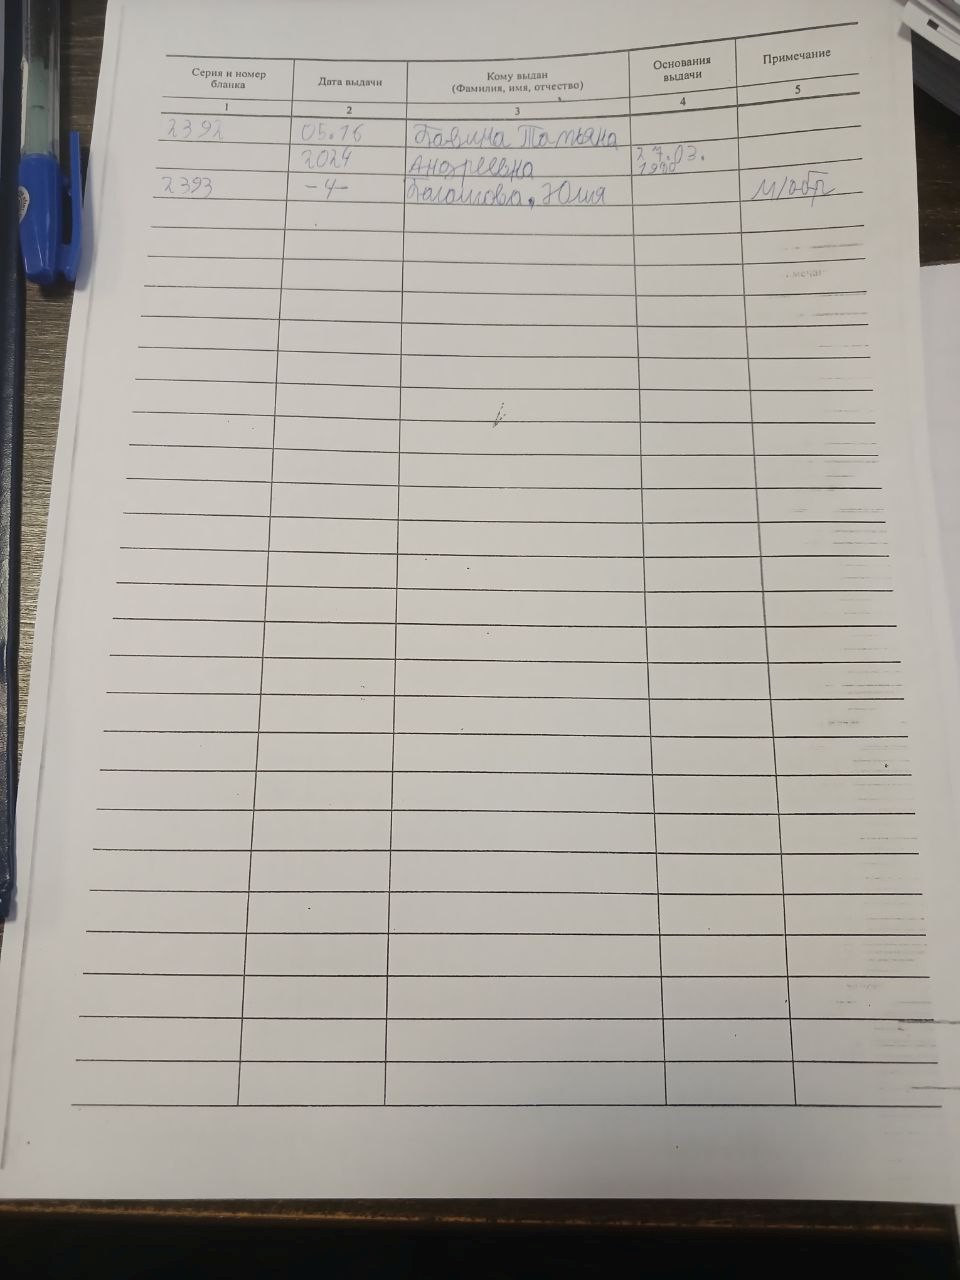 Серия и номер бланка
Дата выдачи
Кому выдан (Фамилия, имя, отчество)
Основания выдачи
Примечание
1 2 3 4 5
2392 05.16 Татьяна
2024 Андреевна 27.03. 1990
2393 -4- Юлия м/обр